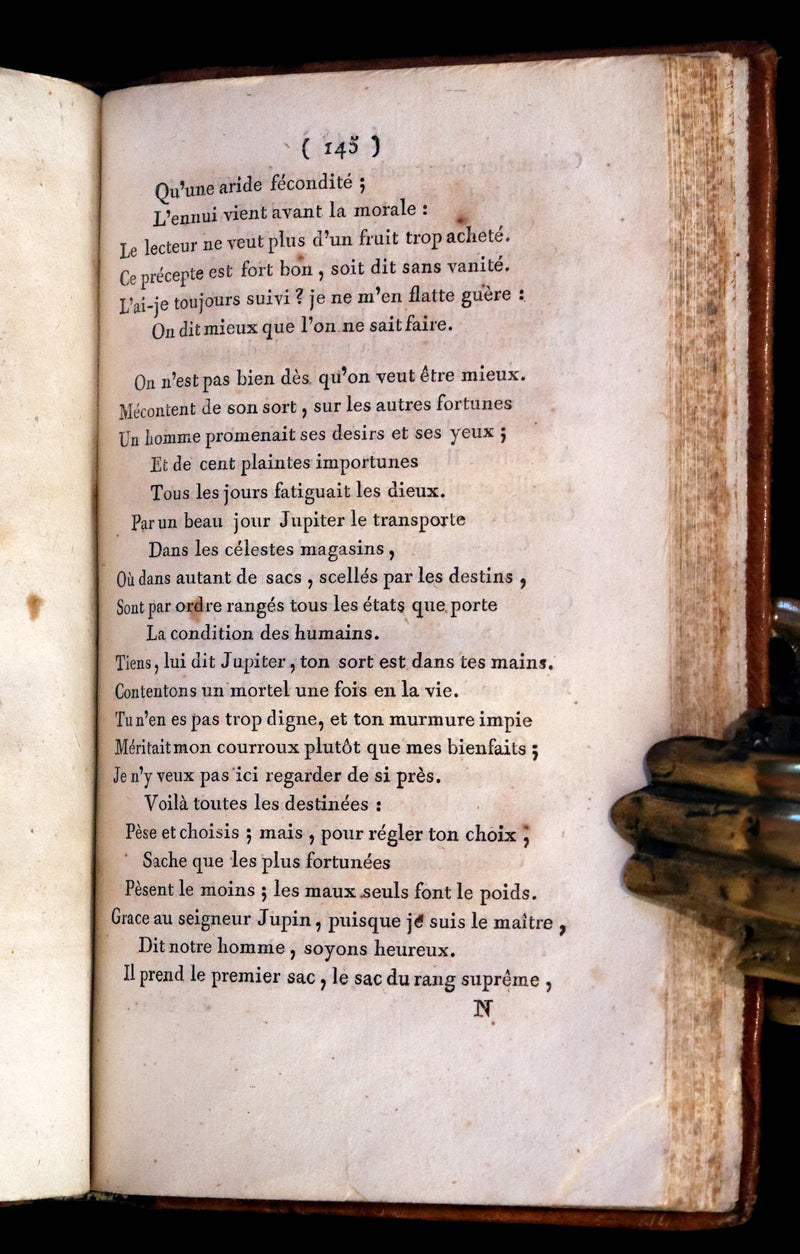 ( 145 )
Qu'une aride fécondité ;
L'ennui vient avant la morale :
Le lecteur ne veut plus d'un fruit trop acheté.
Ce précepte est fort bon , soit dit sans vanité.
L'ai-je toujours suivi ? je ne m'en flatte guère :
On dit mieux que l'on ne sait faire.

On n'est pas bien dès qu'on veut être mieux.
Mécontent de son sort , sur les autres fortunes
Un homme promenait ses desirs et ses yeux ;
Et de cent plaintes importunes
Tous les jours fatiguait les dieux.
Par un beau jour Jupiter le transporte
Dans les célestes magasins ,
Où dans autant de sacs , scellés par les destins ,
Sont par ordre rangés tous les états que porte
La condition des humains.
Tiens , lui dit Jupiter , ton sort est dans tes mains.
Contentons un mortel une fois en la vie.
Tu n'en es pas trop digne, et ton murmure impie
Méritait mon courroux plutôt que mes bienfaits ;
Je n'y veux pas ici regarder de si près.
Voilà toutes les destinées :
Pèse et choisis ; mais , pour régler ton choix ,
Sache que les plus fortunées
Pèsent le moins ; les maux seuls font le poids.
Grace au seigneur Jupin , puisque je suis le maître ,
Dit notre homme , soyons heureux.
Il prend le premier sac , le sac du rang suprême ,
N